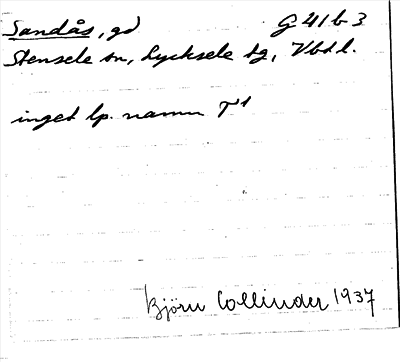 Sandås, gd G 41 b 3
Stensele sn, Lycksele tg, Vbd l.
inget lp. namn T¹
Björn Collinder 1937